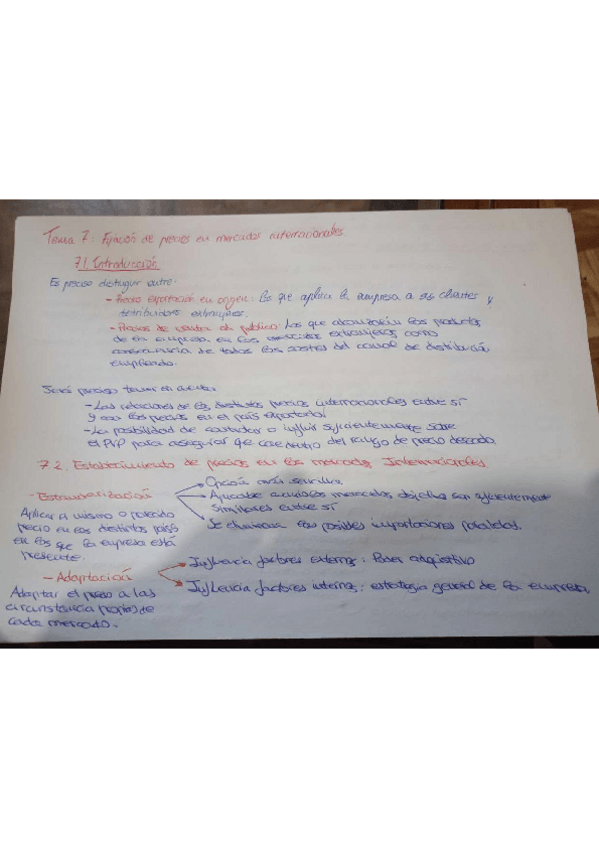 Tema 7: Fijación de precios en mercados internacionales
7.1. Introducción
Es preciso distinguir entre:
- Precio exportación en origen: los que aplica la empresa a sus clientes y
distribuidores extranjeros.
- Precios de venta al público los que alcanzarán los productos
de la empresa en los mercados extranjeros como
consecuencia de todos los costes del canal de distribución
empleado.
Será preciso tener en cuenta
- Las relaciones de los distintos precios internacionales entre sí
y con los precios en el país exportador
- La posibilidad de controlar o influir suficientemente sobre
el PVP para asegurar que cae dentro del rango de precio deseado.
7.2. Establecimiento de precios en los mercados Internacionales.
- Estandarización
Opción más sencilla.
Aplicar el mismo o parecido
precio en los distintos países
en los que la empresa está
presente.
mercados objetivo son suficientemente
similares entre sí
Se eliminan las posibles importaciones paralelas.
- Adaptación
Adaptar el precio a las
circunstancia propias de
cada mercado.
Influencia factores externos: Poder adquisitivo
Influencia factores internos: estrategia general de la empresa